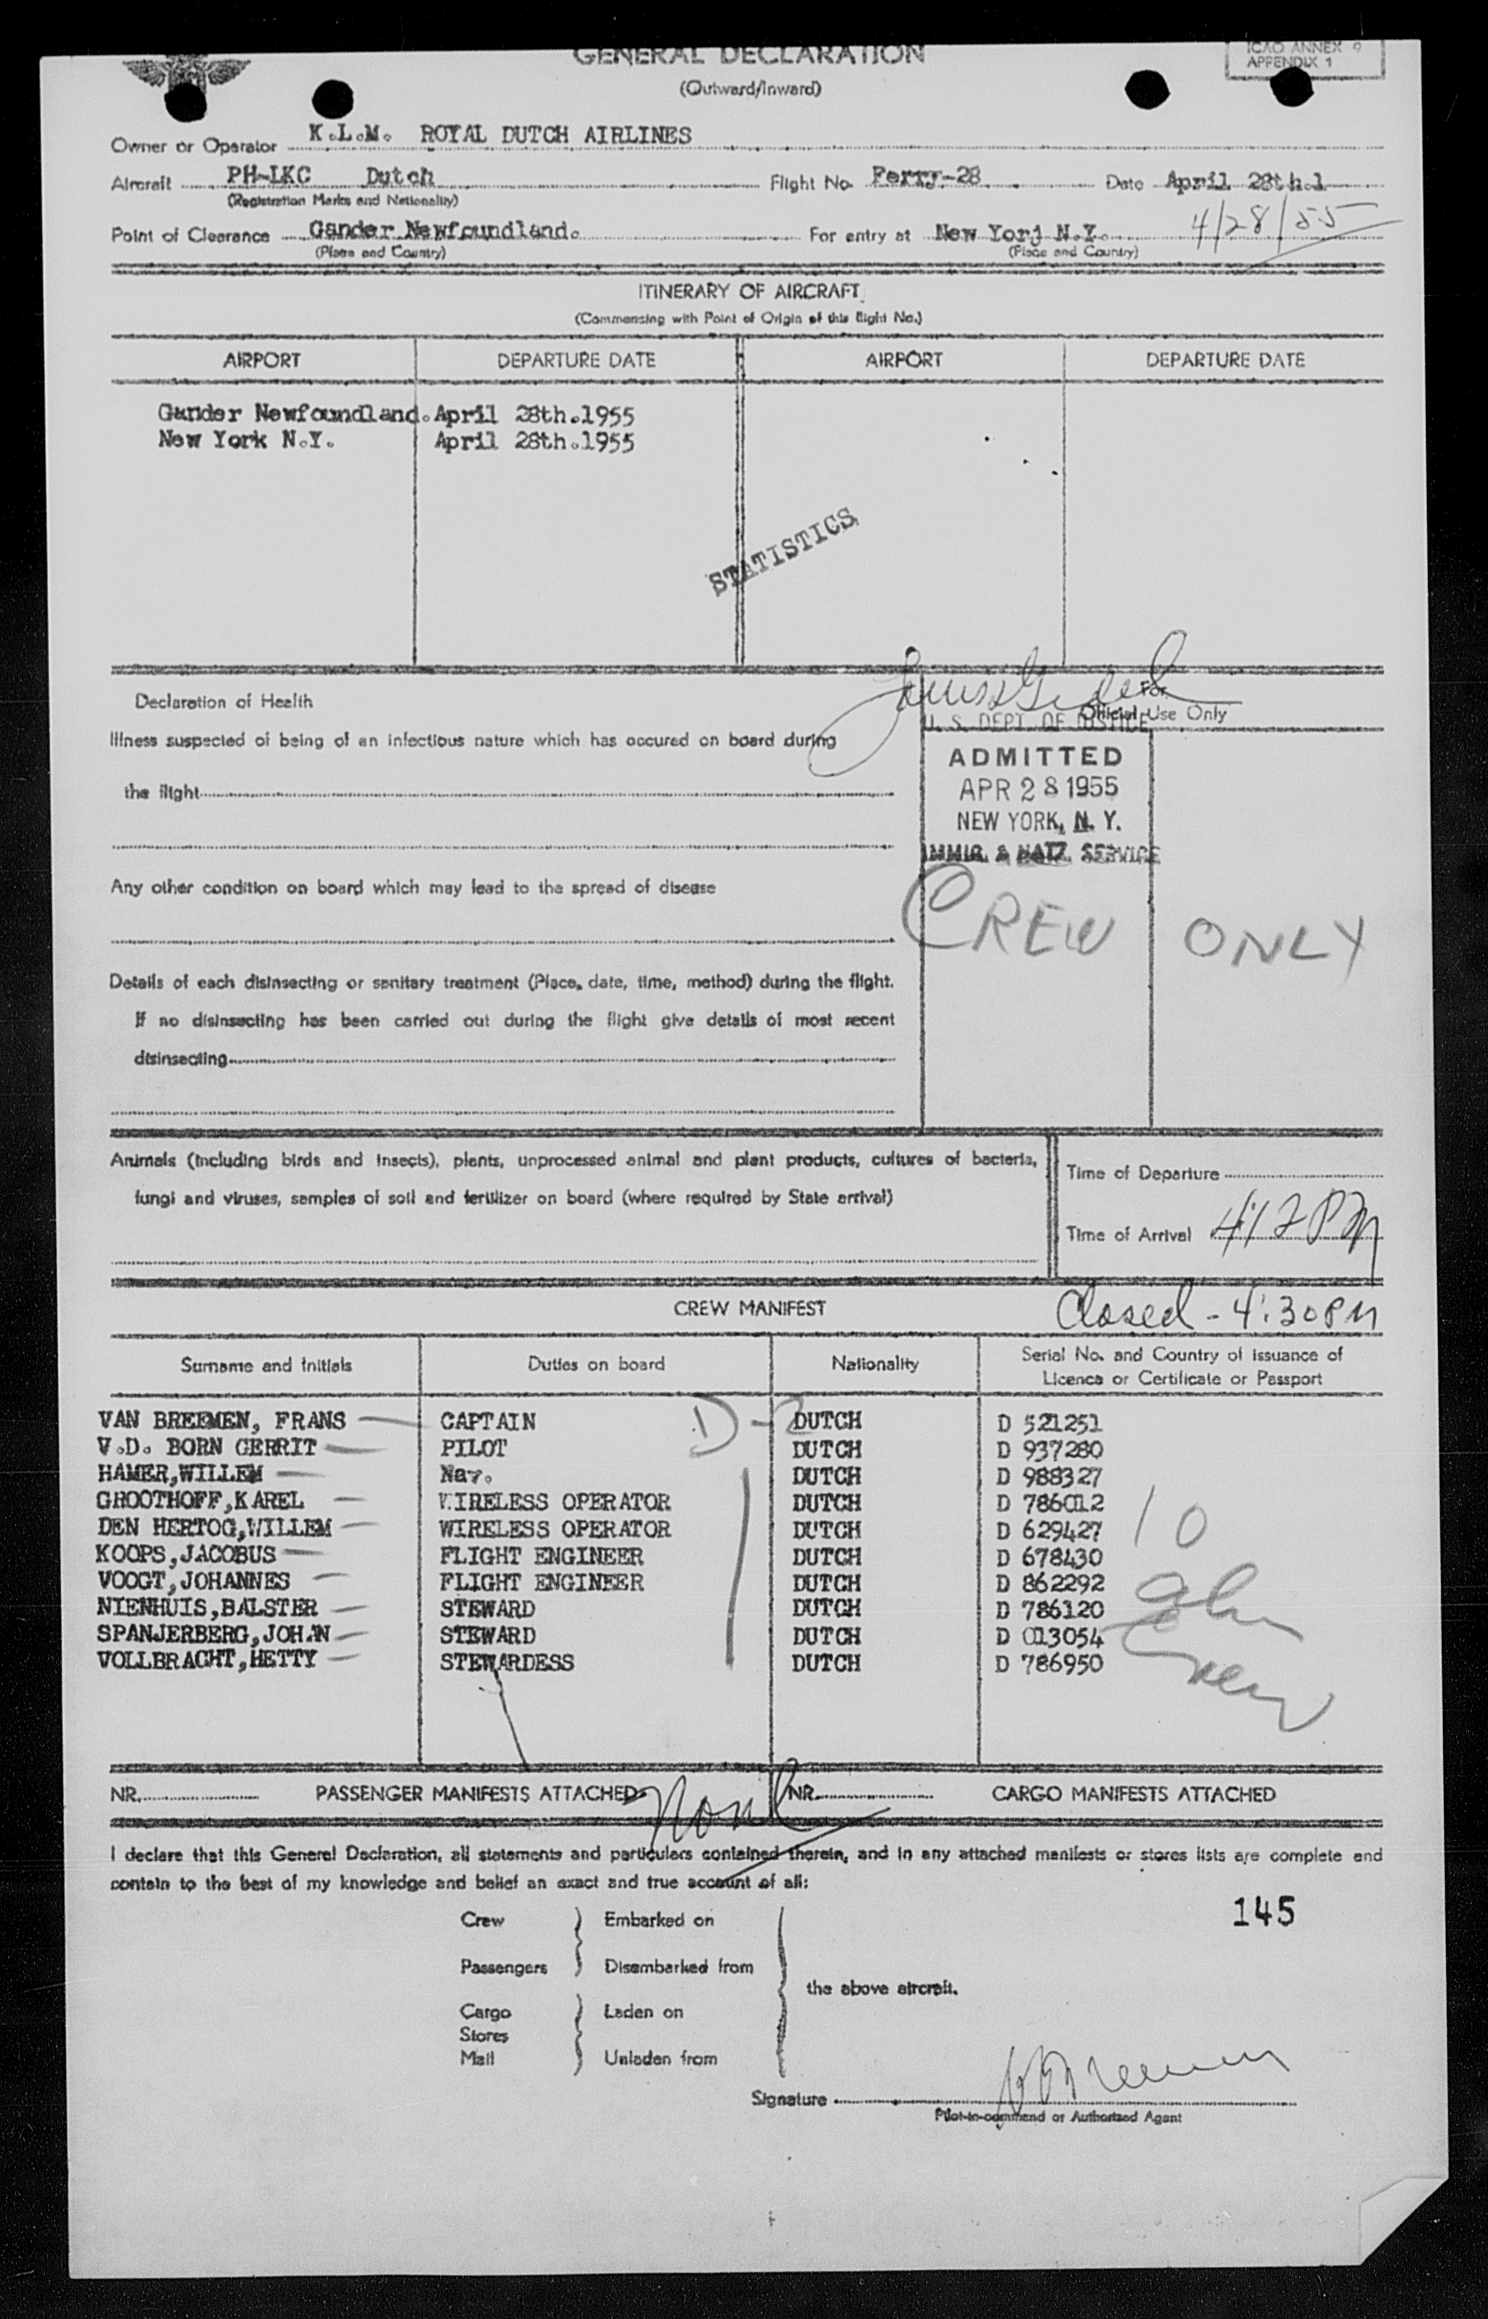 GENERAL DECLARATION
(Outward/Inward)
ICAO ANNEX 9
APPENDIX 1
Owner or Operator K.L.M. ROYAL DUTCH AIRLINES
Aircraft PH-LKC Dutch Flight No. Ferry-28 Date April 28th.1
(Registration Marks and Nationality)
4/28/55
Point of Clearance Gander Newfoundland. For entry at New Yorj N.Y.
(Place and Country) (Place and Country)
ITINERARY OF AIRCRAFT
(Commencing with Point of Origin of this flight No.)
AIRPORT DEPARTURE DATE AIRPORT DEPARTURE DATE
Gander Newfoundland. April 28th.1955
New York N.Y. April 28th.1955
STATISTICS
Declaration of Health
For
Official Use Only
U. S. DEPT. OF JUSTICE
Illness suspected of being of an infectious nature which has occured on board during
the flight
ADMITTED
APR 28 1955
NEW YORK, N. Y.
IMMIG. & NATZ. SERVICE
Any other condition on board which may lead to the spread of disease
CREW ONLY
Details of each disinsecting or sanitary treatment (Place, date, time, method) during the flight.
If no disinsecting has been carried out during the flight give details of most recent
disinsecting
Animals (including birds and insects), plants, unprocessed animal and plant products, cultures of bacteria,
fungi and viruses, samples of soil and fertilizer on board (where required by State arrival)
Time of Departure
Time of Arrival 4:12 PM
CREW MANIFEST
Closed - 4:30 PM
Surname and Initials Duties on board Nationality Serial No. and Country of issuance of
Licence or Certificate or Passport
D-2
VAN BREEMEN, FRANS CAPTAIN DUTCH D 521251
V.D. BORN GERRIT PILOT DUTCH D 937280
HAMER,WILLEM Nav. DUTCH D 988327
GROOTHOFF,KAREL WIRELESS OPERATOR DUTCH D 786012
DEN HERTOG,WILLEM WIRELESS OPERATOR DUTCH D 629427
KOOPS,JACOBUS FLIGHT ENGINEER DUTCH D 678430
VOOGT,JOHANNES FLIGHT ENGINEER DUTCH D 862292
NIENHUIS,BALSTER STEWARD DUTCH D 786120
SPANJERBERG,JOHAN STEWARD DUTCH D 013054
VOLLBRACHT,HETTY STEWARDESS DUTCH D 786950
10
Crew
NR. PASSENGER MANIFESTS ATTACHED None NR. CARGO MANIFESTS ATTACHED
I declare that this General Declaration, all statements and particulars contained therein, and in any attached manifests or stores lists are complete and
contain to the best of my knowledge and belief an exact and true account of all:
145
Crew Embarked on
Passengers Disembarked from
the above aircraft.
Cargo Laden on
Stores
Mail Unladen from
Signature
Pilot-in-command or Authorized Agent